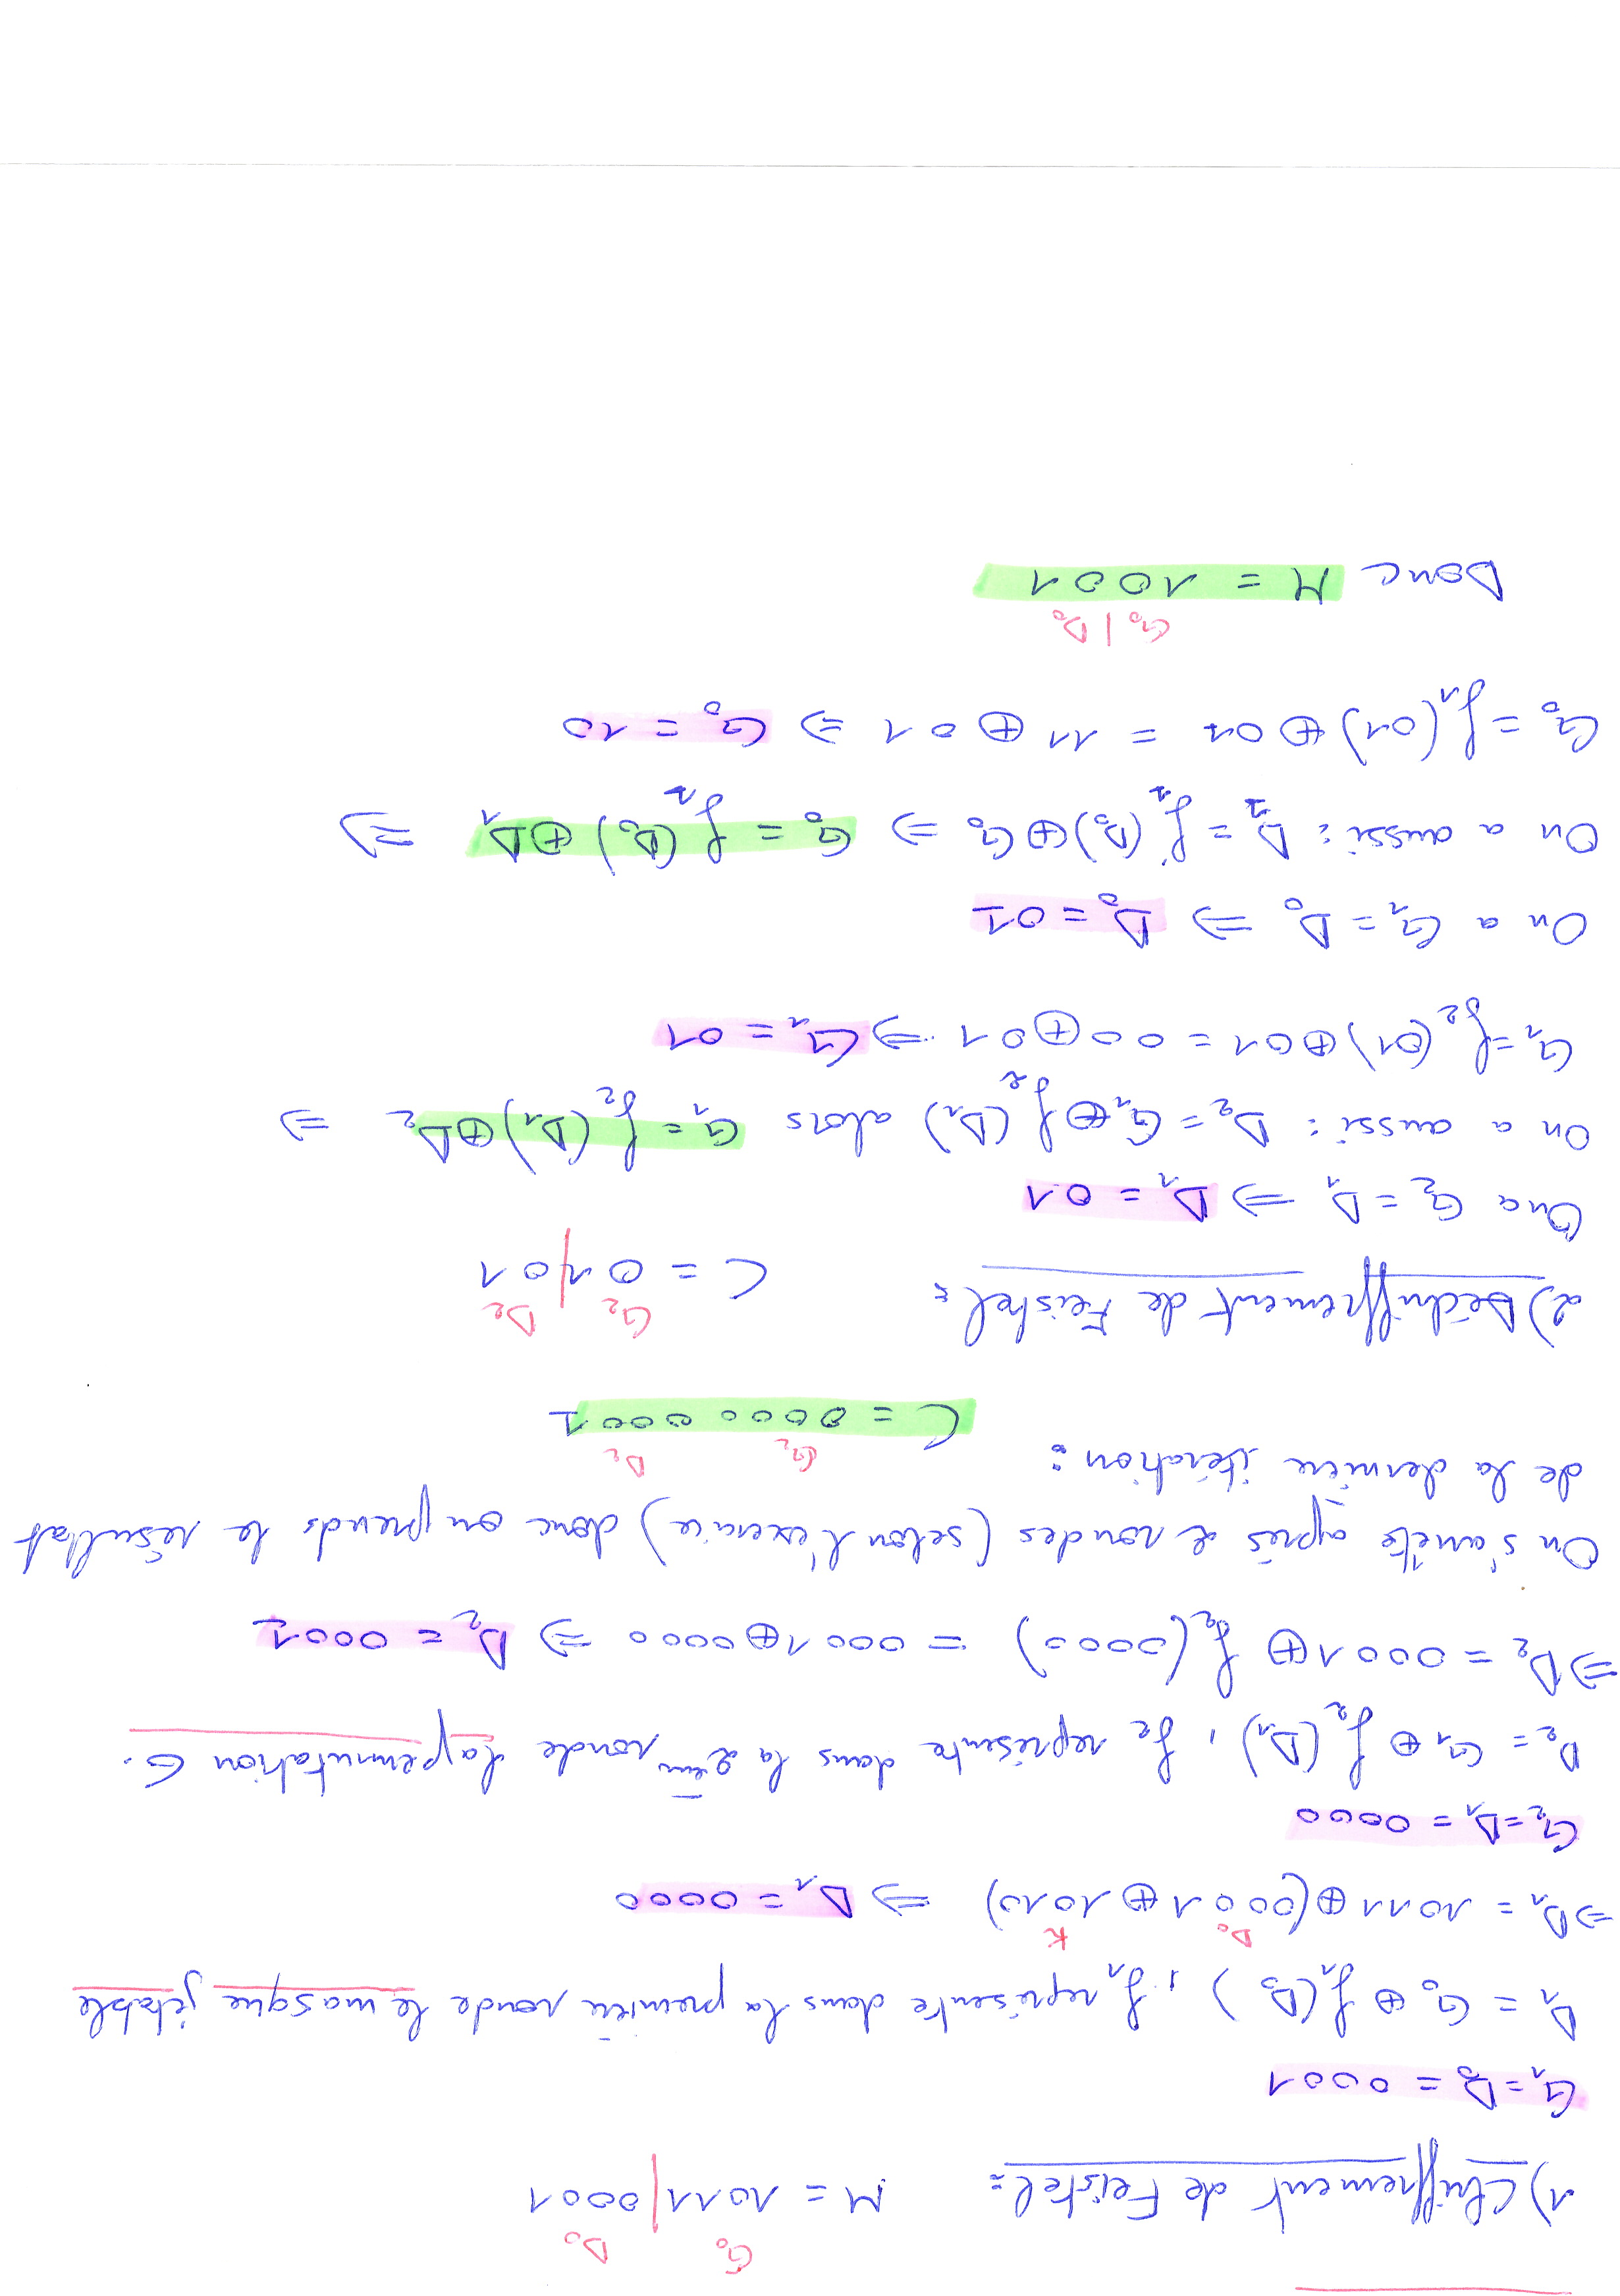 G₀ D₀
1) Chiffrement de Feistel : M = 1011|0001
G₁ = D₀ = 0001
D₁ = G₀ ⊕ f₁(D₀), f₁ représente dans la première ronde le masque jétable
D₀ K
⇒ D₁ = 1011 ⊕ (0001 ⊕ 1010) ⇒ D₁ = 0000
G₂ = D₁ = 0000
D₂ = G₁ ⊕ f₂(D₁), f₂ représente dans la 2ème ronde la permutation G.
⇒ D₂ = 0001 ⊕ f₂(0000) = 0001 ⊕ 0000 ⇒ D₂ = 0001
On s'arrête après 2 rondes (selon l'exercice) donc on prends le résultat
de la dernière itération :
G₂ D₂
C = 0000 0001
G₂ D₂
2) Déchiffrement de Feistel : C = 01|01
On a G₂ = D₁ ⇒ D₁ = 01
On a aussi : D₂ = G₁ ⊕ f₂(D₁) alors G₁ = f₂(D₁) ⊕ D₂ ⇒
G₁ = f₂(01) ⊕ 01 = 00 ⊕ 01 ⇒ G₁ = 01
On a G₁ = D₀ ⇒ D₀ = 01
On a aussi : D₁ = f₁(D₀) ⊕ G₀ ⇒ G₀ = f₁(D₀) ⊕ D₁ ⇒
G₀ = f₁(01) ⊕ 01 = 11 ⊕ 01 ⇒ G₀ = 10
G₀ | D₀
Donc M = 1001